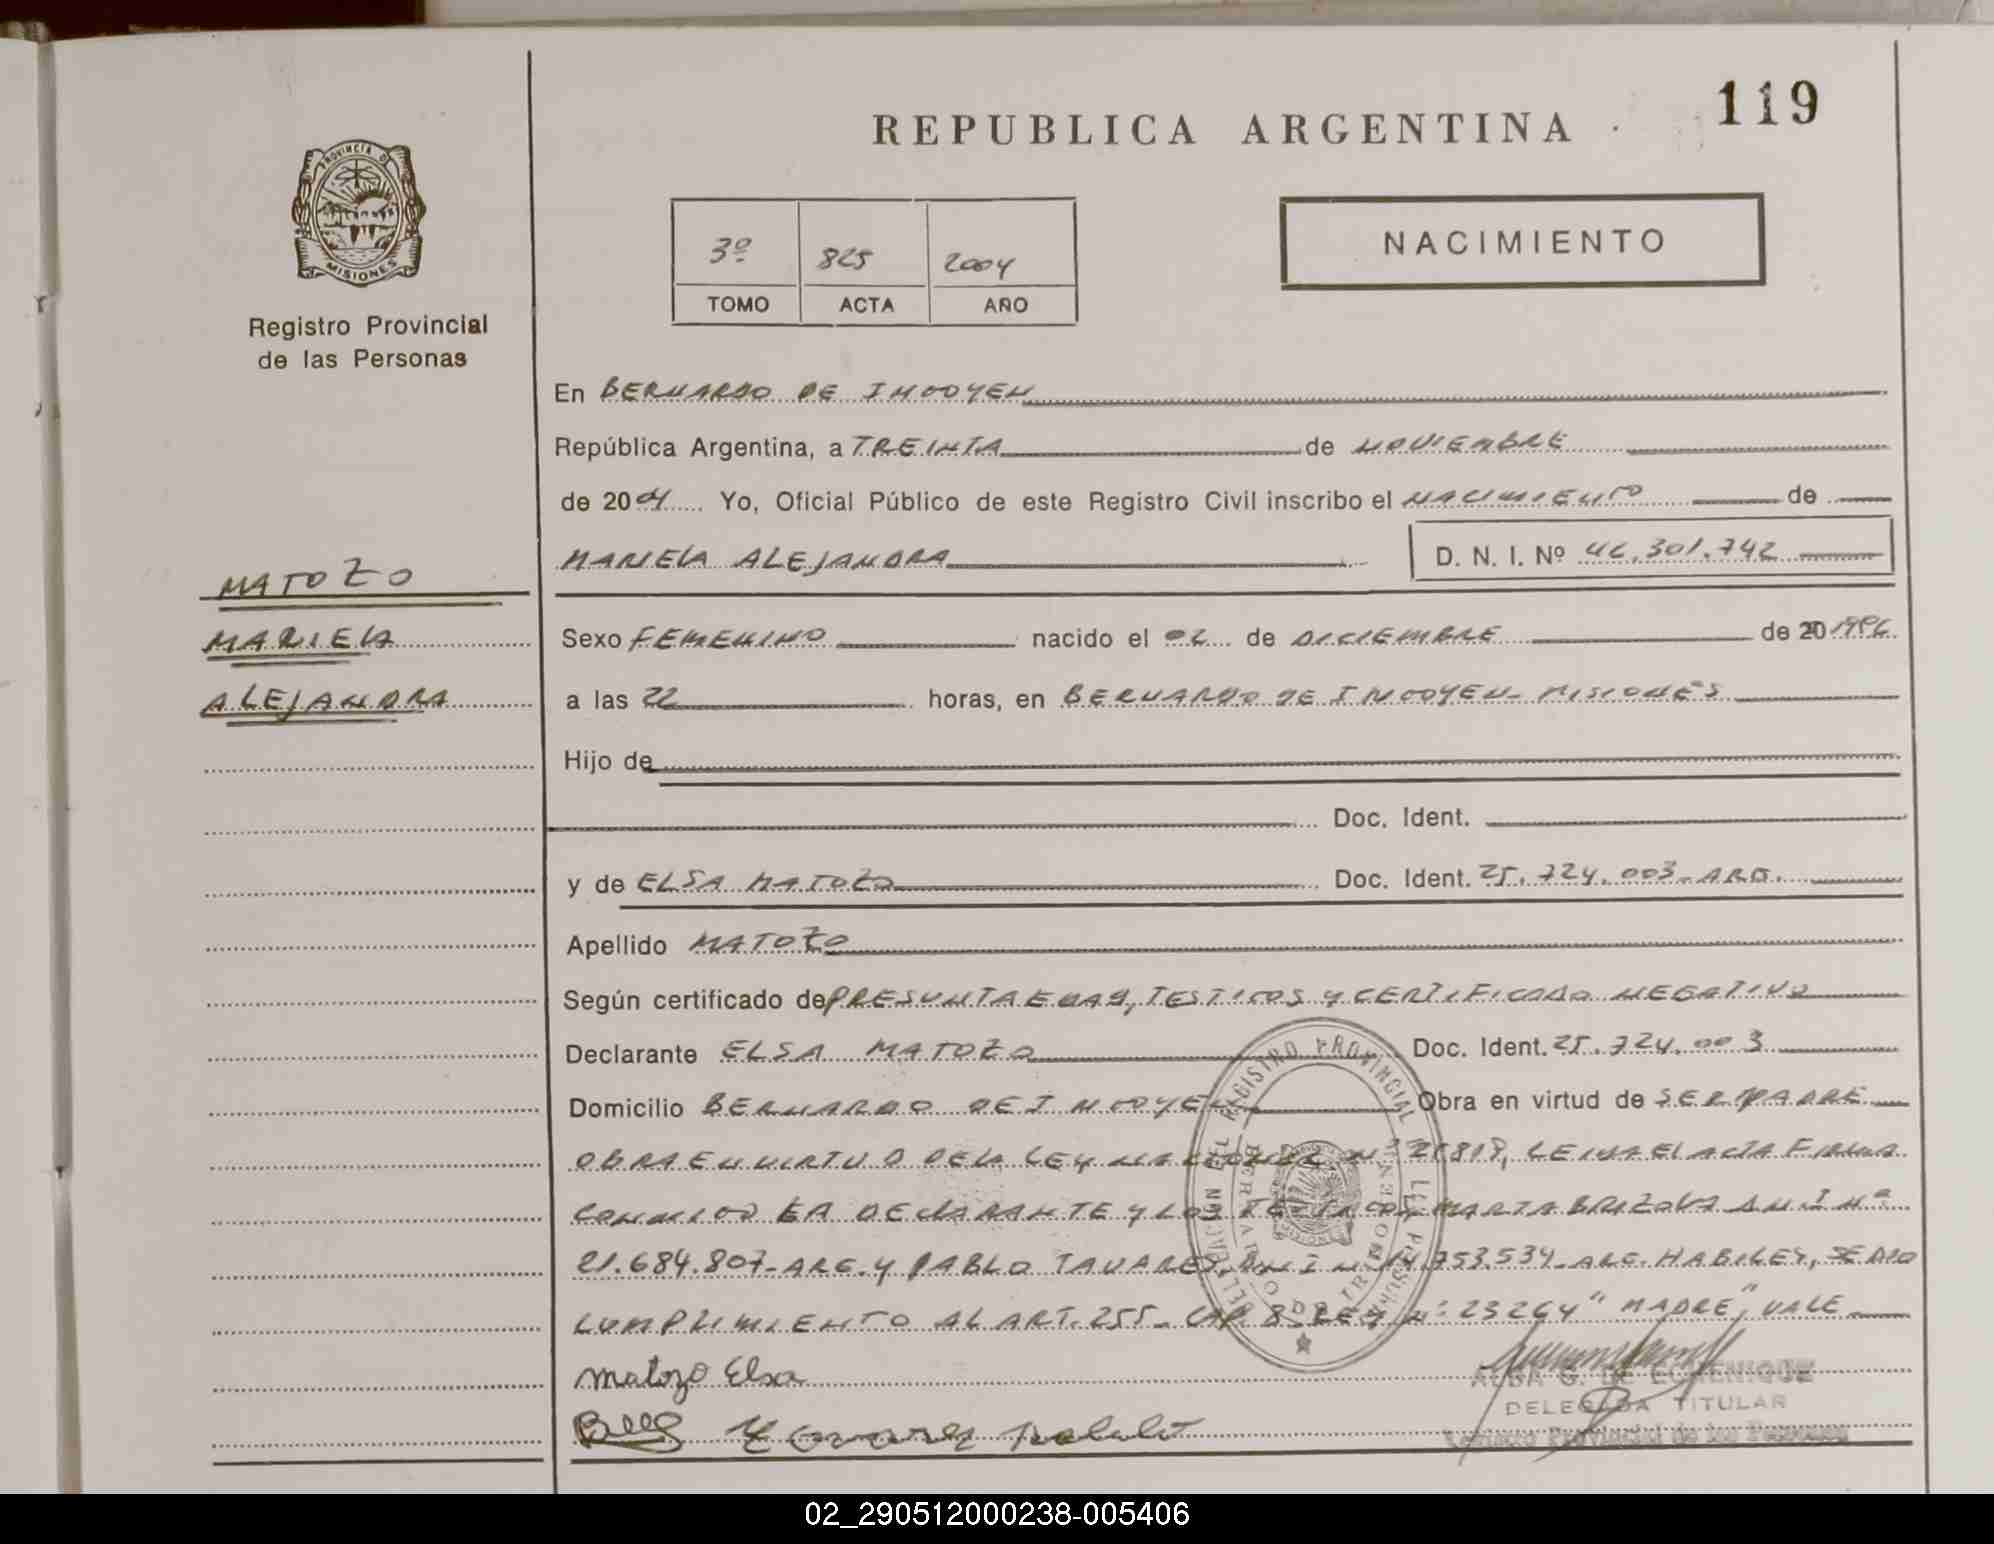 119
REPUBLICA ARGENTINA
PROVINCIA DE
MISIONES
Registro Provincial
de las Personas
3º 825 2004
TOMO ACTA AÑO
NACIMIENTO
En BERNARDO DE IRIGOYEN
República Argentina, a TREINTA de NOVIEMBRE
de 2004 Yo, Oficial Público de este Registro Civil inscribo el NACIMIENTO de
MARIELA ALEJANDRA D. N. I. Nº 42.301.742
MATOZO
MARIELA
ALEJANDRA
Sexo FEMENINO nacido el 02 de DICIEMBRE de 20
a las 22 horas, en BERNARDO DE IRIGOYEN-MISIONES
Hijo de
Doc. Ident.
y de ELSA MATOZO Doc. Ident. 25.724.003-ARG.
Apellido MATOZO
Según certificado de PRESUNTA EDAD, TESTIGOS Y CERTIFICADO NEGATIVO
Declarante ELSA MATOZO Doc. Ident. 25.724.003
Domicilio BERNARDO DE IRIGOYEN Obra en virtud de SER PADRE
OBRA EN VIRTUD DE LA LEY NACIONAL Nº 25.818, LEIDA EL ACTA FIRMA
CONMIGO LA DECLARANTE Y LOS TESTIGOS MARTA D.N.I Nº
21.684.807-ARG. Y PABLO TAVARES, D.N.I Nº .753.534-ARG. HABILES, SE DIO
CUMPLIMIENTO AL ART. 255- CAP. 8-LEY Nº 23264 "MADRE", VALE
REGISTRO PROVINCIAL DE LAS PERSONAS
DELEGACION
BERNARDO DE IRIGOYEN
Matozo Elsa
ALBA G. DE ECHENIQUE
DELEGADA TITULAR
Registro Provincial de las Personas
02_290512000238-005406